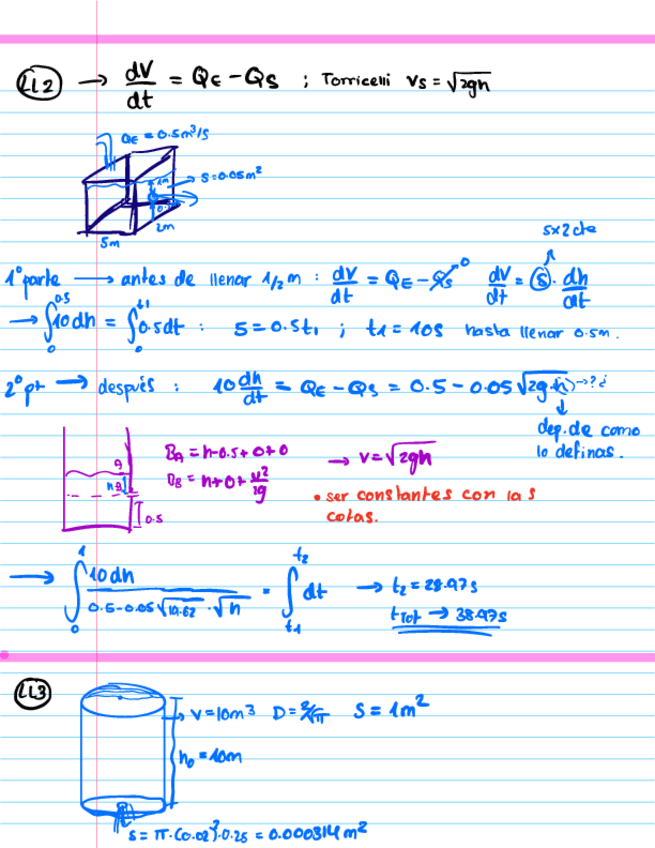 LL2 → dV/dt = QE - QS ; Torricelli vs = √2gh
QE = 0.5m³/s
1m
S=0.05m²
5m
2m
5x2 cte
1º parte → antes de llenar 1/2 m : dV/dt = QE - QS 0 dV/dt = S · dh/dt
→ ∫₀^0.5 10dh = ∫₀^t1 0.5dt : 5 = 0.5t₁ ; t₁ = 10s hasta llenar 0.5m.
2º pt → después : 10 dh/dt = QE - QS = 0.5 - 0.05 √2g·h → ? ¿
dep. de como
lo definas.
BA = h-0.5+0+0
BB = h+0+ v²/2g
→ v = √2gh
• ser constantes con las
cotas.
0.5
→ ∫₀^1 10dh / 0.5-0.05√19.62 · √h = ∫t1^t2 dt → t₂ = 28.97s
tTOT → 38.97s
LL3
V = 10m³ D = 2/√π S = 1m²
h₀ = 10m
s = π·(0.02)²·0.25 = 0.000314m²